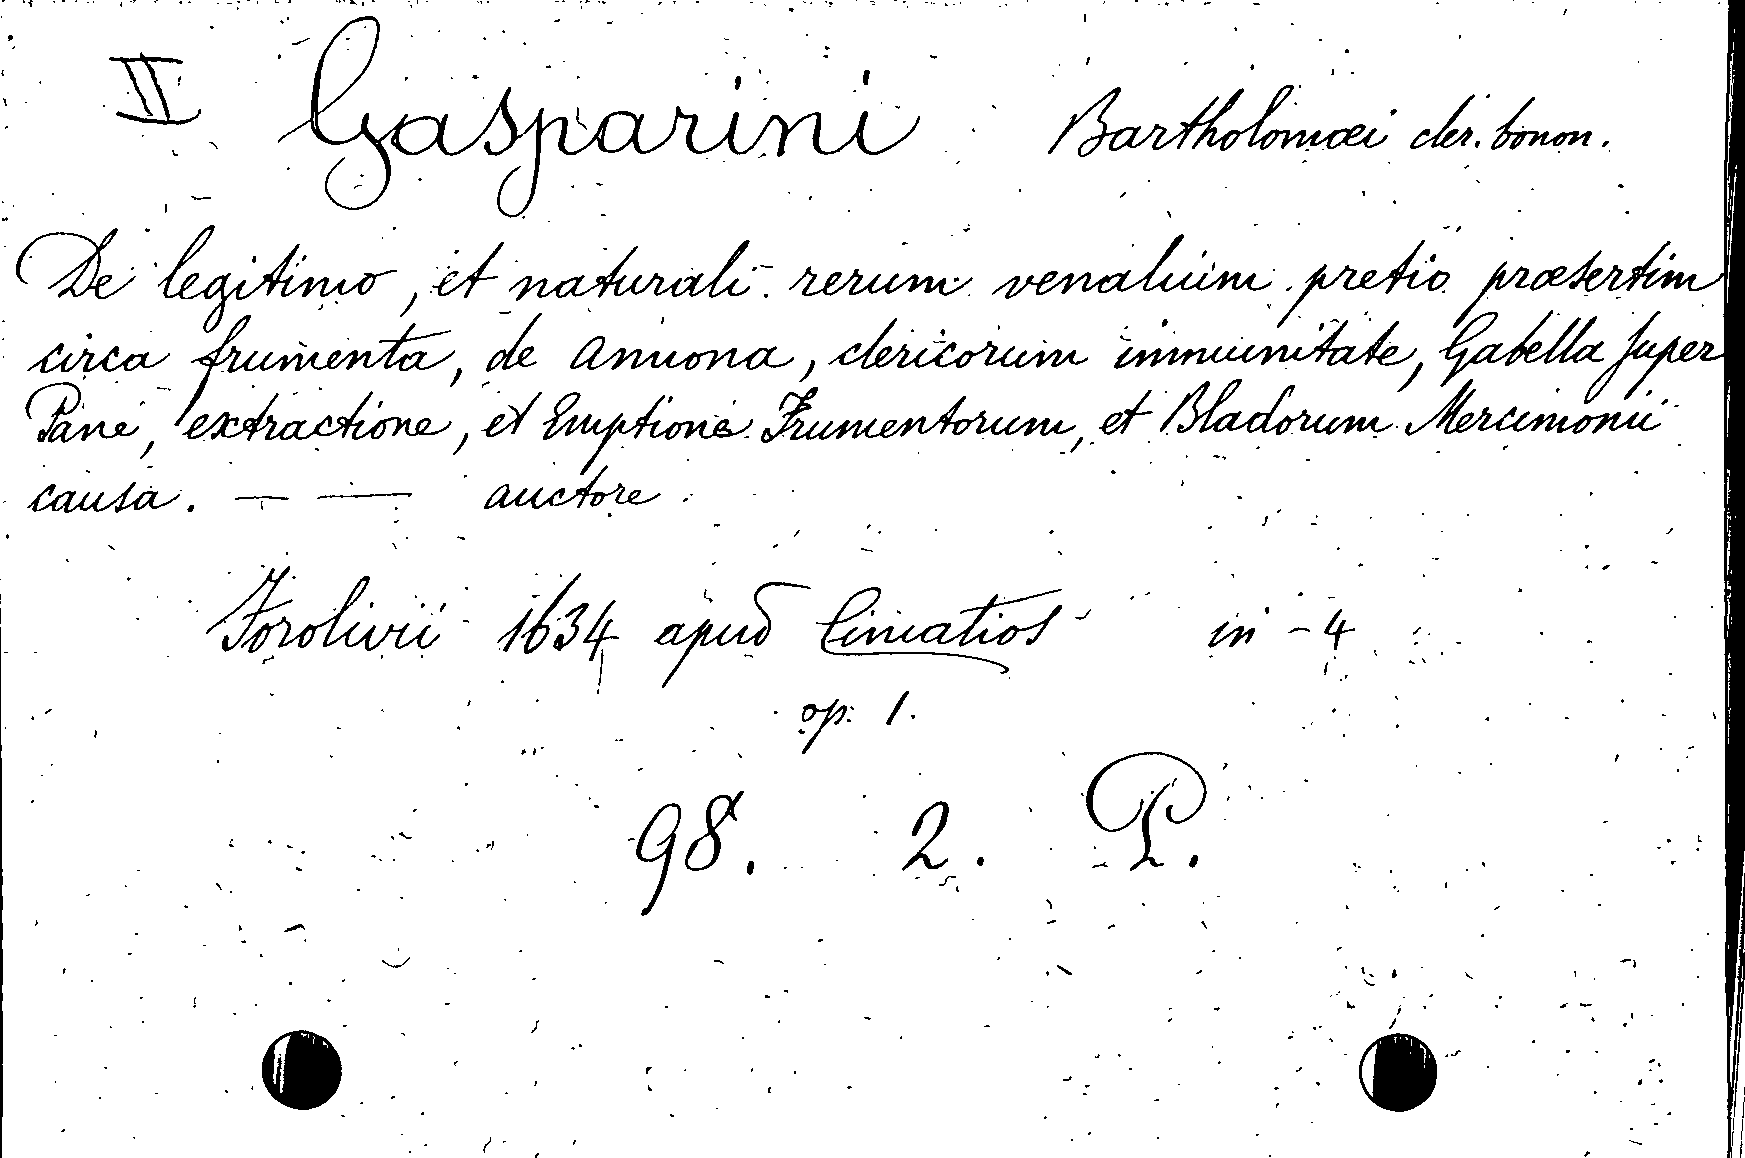 II Gasparini Bartholomæi cler. bonon.
De legitimo, et naturali rerum venalium pretio præsertim
circa frumenta, de annona, clericorum immunitate, Gabella super
Pane, extractione, et Emptione Frumentorum, et Bladorum Mercimonii
causa. — — auctore
Forolivii 1634 apud Cimatios in-4
op. 1.
98. 2. P.